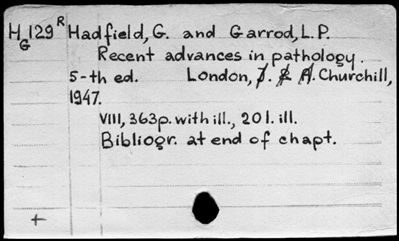 H 129 R Hadfield, G. and Garrod, L.P.
G
Recent advances in pathology.
5-th ed. London, J. & A. Churchill,
1947.
VIII, 363p. with ill., 20 l. ill.
Bibliogr. at end of chapt.
+